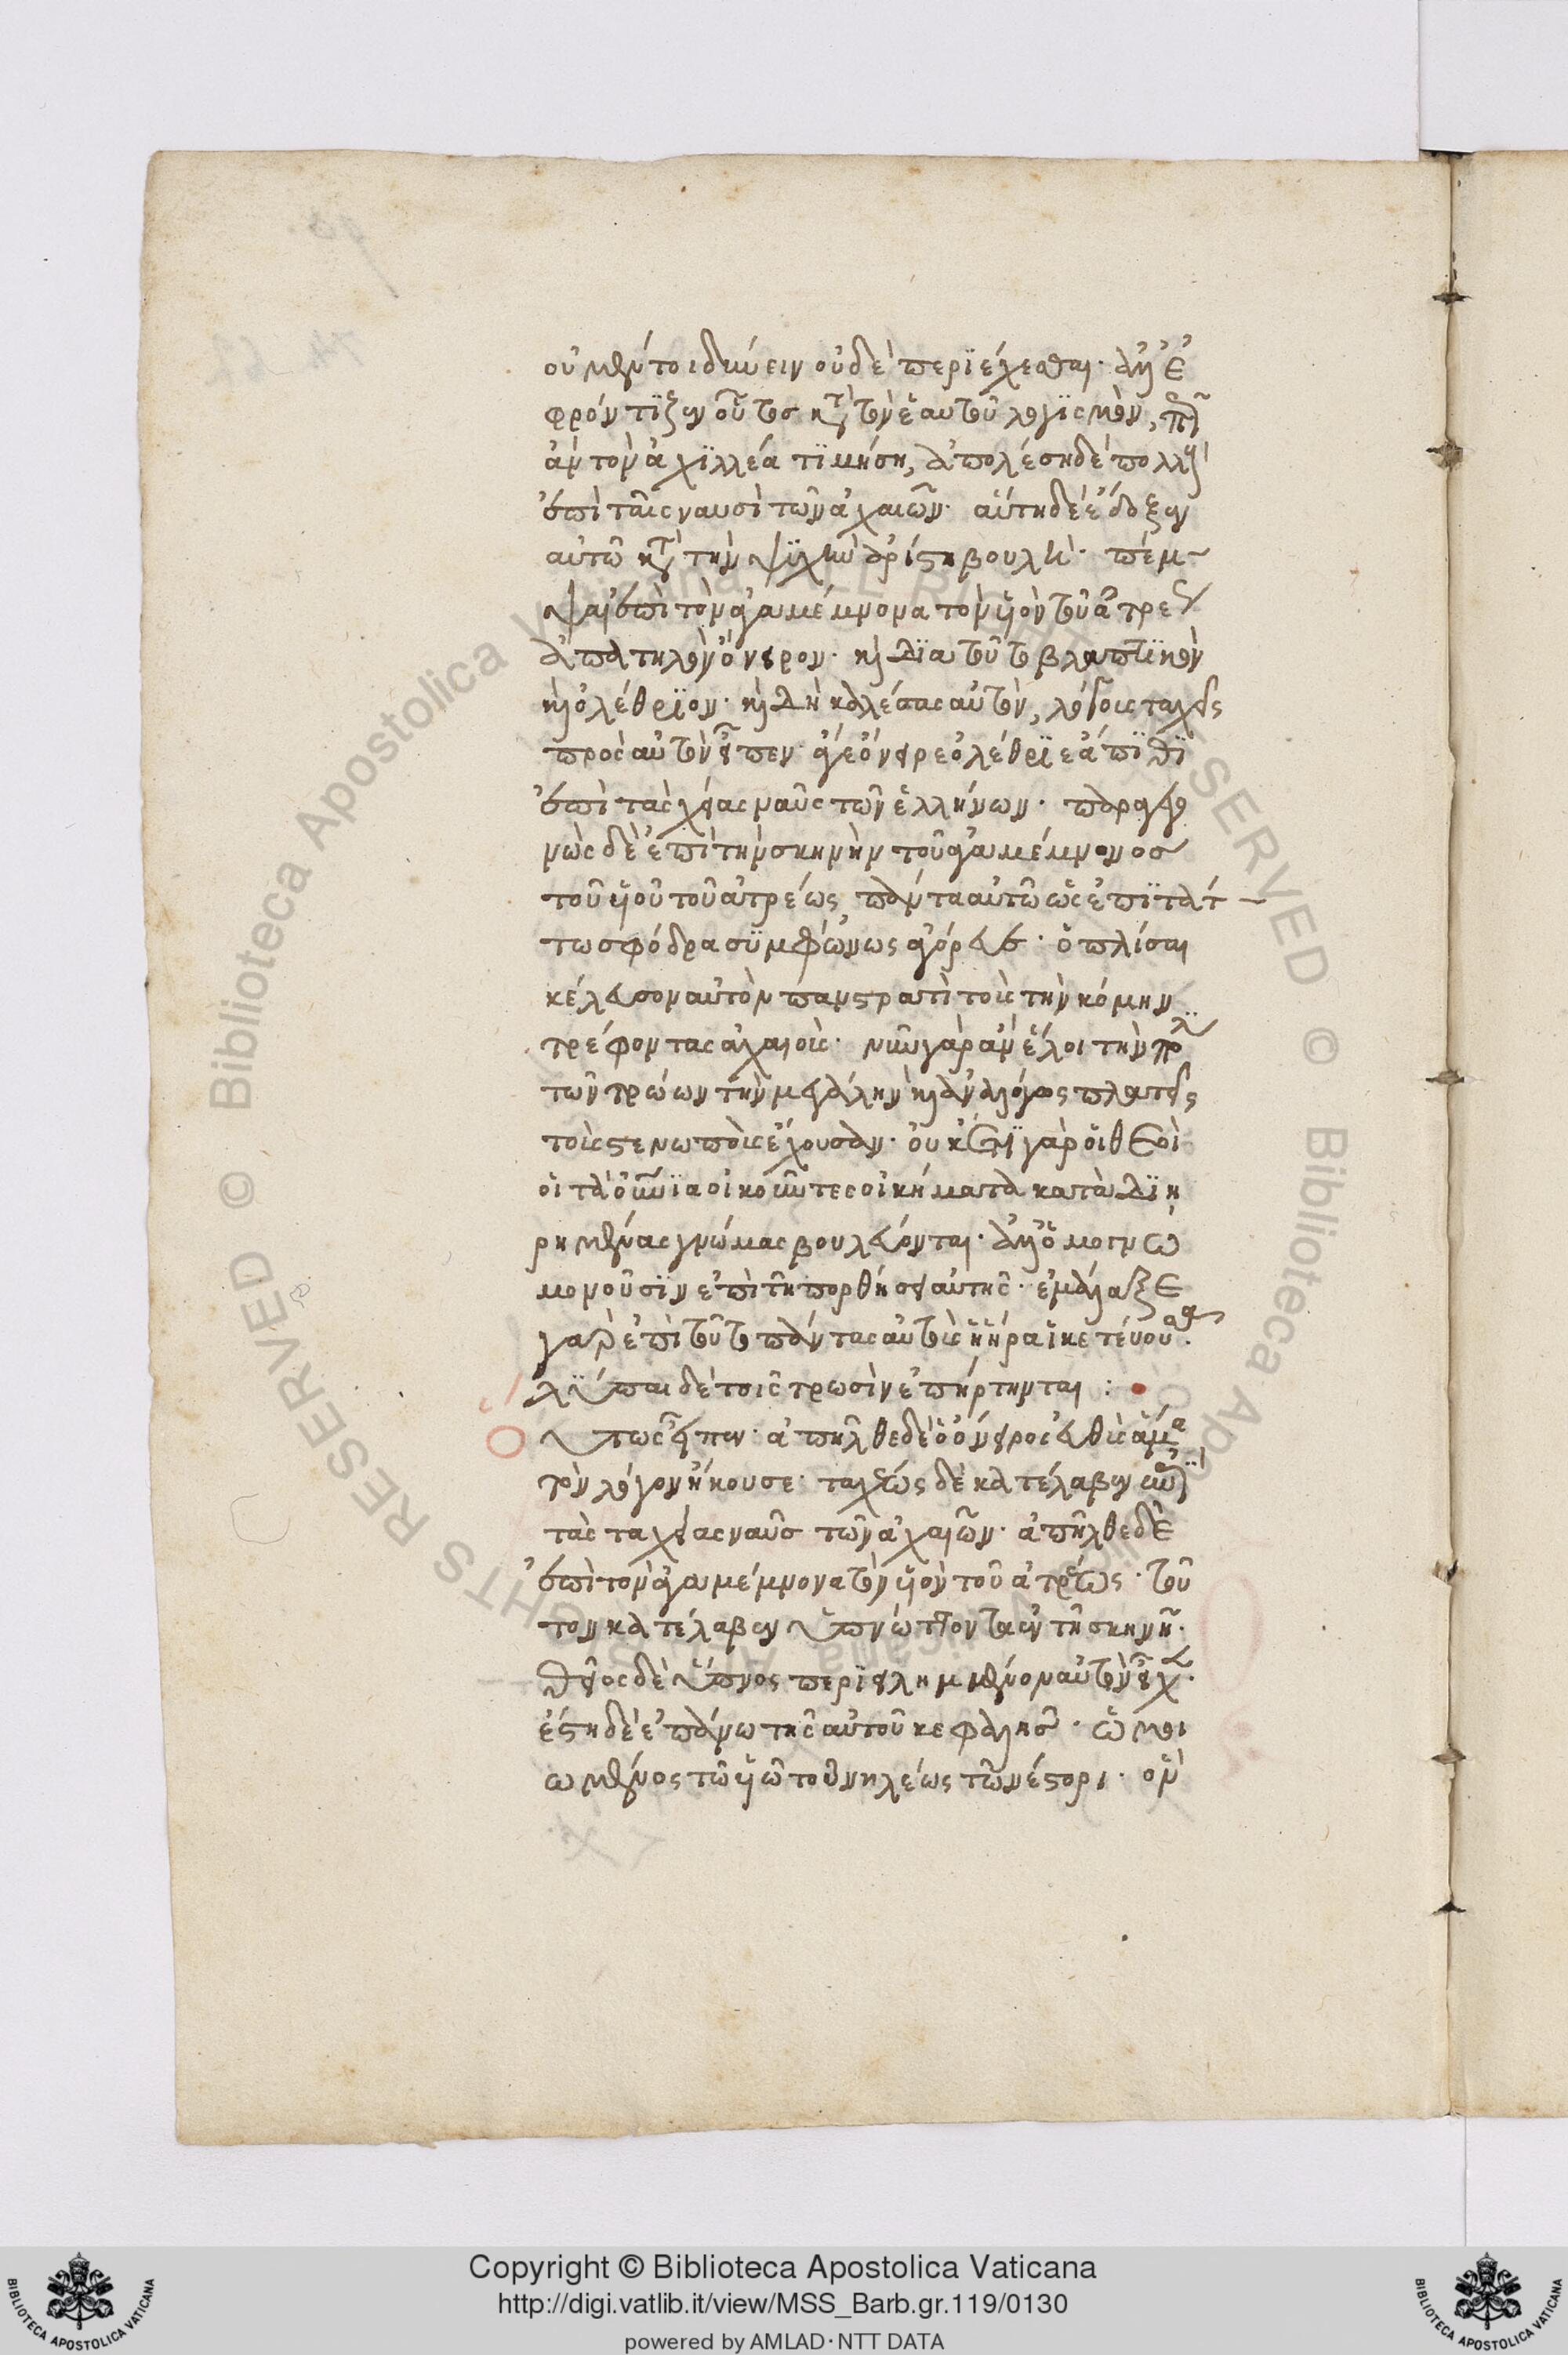 οὐ μέντοι δικύειν οὐδὲ περϊέχεσθαι· ἀλλ' ἐ
φρόντϊζεν οὗτος κατὰ τὸν ἑαυτοῦ λογϊσμὸν, πῶς
ἂν τὸν ἀχϊλλέα τϊμήση, ἀπολέση δὲ πολλοὺς
ἐπὶ ταῖς ναυσὶ τῶν ἀχαιῶν· αὕτη δὲ ἔδοξεν
αὐτῶ κατὰ τὴν ψϊχὴν ἀρίστη βουλὴ· πέμ-
ψαι ἐπὶ τὸν ἀγαμέμνονα τὸν ϋἱὸν τοῦ ἀτρέως
ἀπατηλὸν ὄνειρον· καὶ δϊα τοῦτο βλαπτϊκὸν
καὶ ὀλέθρϊον· καὶ δὴ καλέσας αὐτὸν, λόγοις ταχεῖς
πρὸς αὐτὸν εἶπεν· ἄγε ὄνειρε ὀλέθρϊε ἄπϊθϊ
ἐπὶ τὰς χείας ναῦς τῶν ἑλλήνων· παραγε
νὼς δὲ ἐπὶ τὴν σκηνὴν τοῦ ἀγαμέμνονος
τοῦ ϋἱοῦ τοῦ ἀτρέως, πάντα αὐτῶ ὡς ἐπϊτάτ-
τω σφόδρα σϋμφώνως ἀγόρευε· ὁπλίσαι
κέλευσον αὐτὸν πανστρατὶ τοὺς τὴν κόμην
τρέφοντας ἀχαιοὺς· νῦν γὰρ ἂν ἕλοι τὴν πόλϊν
τῶν τρώων τὴν μεγάλην καὶ ἀναλόγως πλατεῖς
τοὺς στενωποὺς ἔχουσαν· οὐκ ἔτϊ γὰρ οἱ θεοὶ
οἱ τὰ ὀλύμπϊα οἰκοῦντες οἰκήματα κατὰ δϊη
ρημένας γνώμας βουλεύονται· ἀλλ' ὁμογνω
μονοῦσϊν ἐπὶ τῆ πορθήσει αὐτῆς· ἐμάλαξε
γὰρ ἐπὶ τοῦτο πάντας αὐτοὺς ἡ ἥρα ἱκετέυουσα·
λϋπαι δὲ τοῖς τρωσὶν ἐπήρτηνται :
Οὕτως εἶπεν· ἀπῆλθε δὲ ὁ ὄνειρος εὐθὺς ἅμα
τὸν λόγον ἤκουσε· ταχέως δὲ κατέλαβεν ἐπὶ
τὰς ταχείας ναῦς τῶν ἀχαιῶν· ἀπῆλθε δὲ
ἐπὶ τὸν ἀγαμέμνονα τὸν ϋἱὸν τοῦ ἀτρέως· τοῦ
τον κατέλαβεν ὑπνώττοντα ἐν τῆ σκηνῆ·
θεῖος δὲ ὕπνος περϊειλημμένον αὐτὸν εἶχ·
ἔστη δὲ ἐπάνω τῆς αὐτοῦ κεφαλῆς· ὡμοι
ωμένος τῶ ϋἱῶ τοῦ νηλέως τῶ νέστορι· ὃν